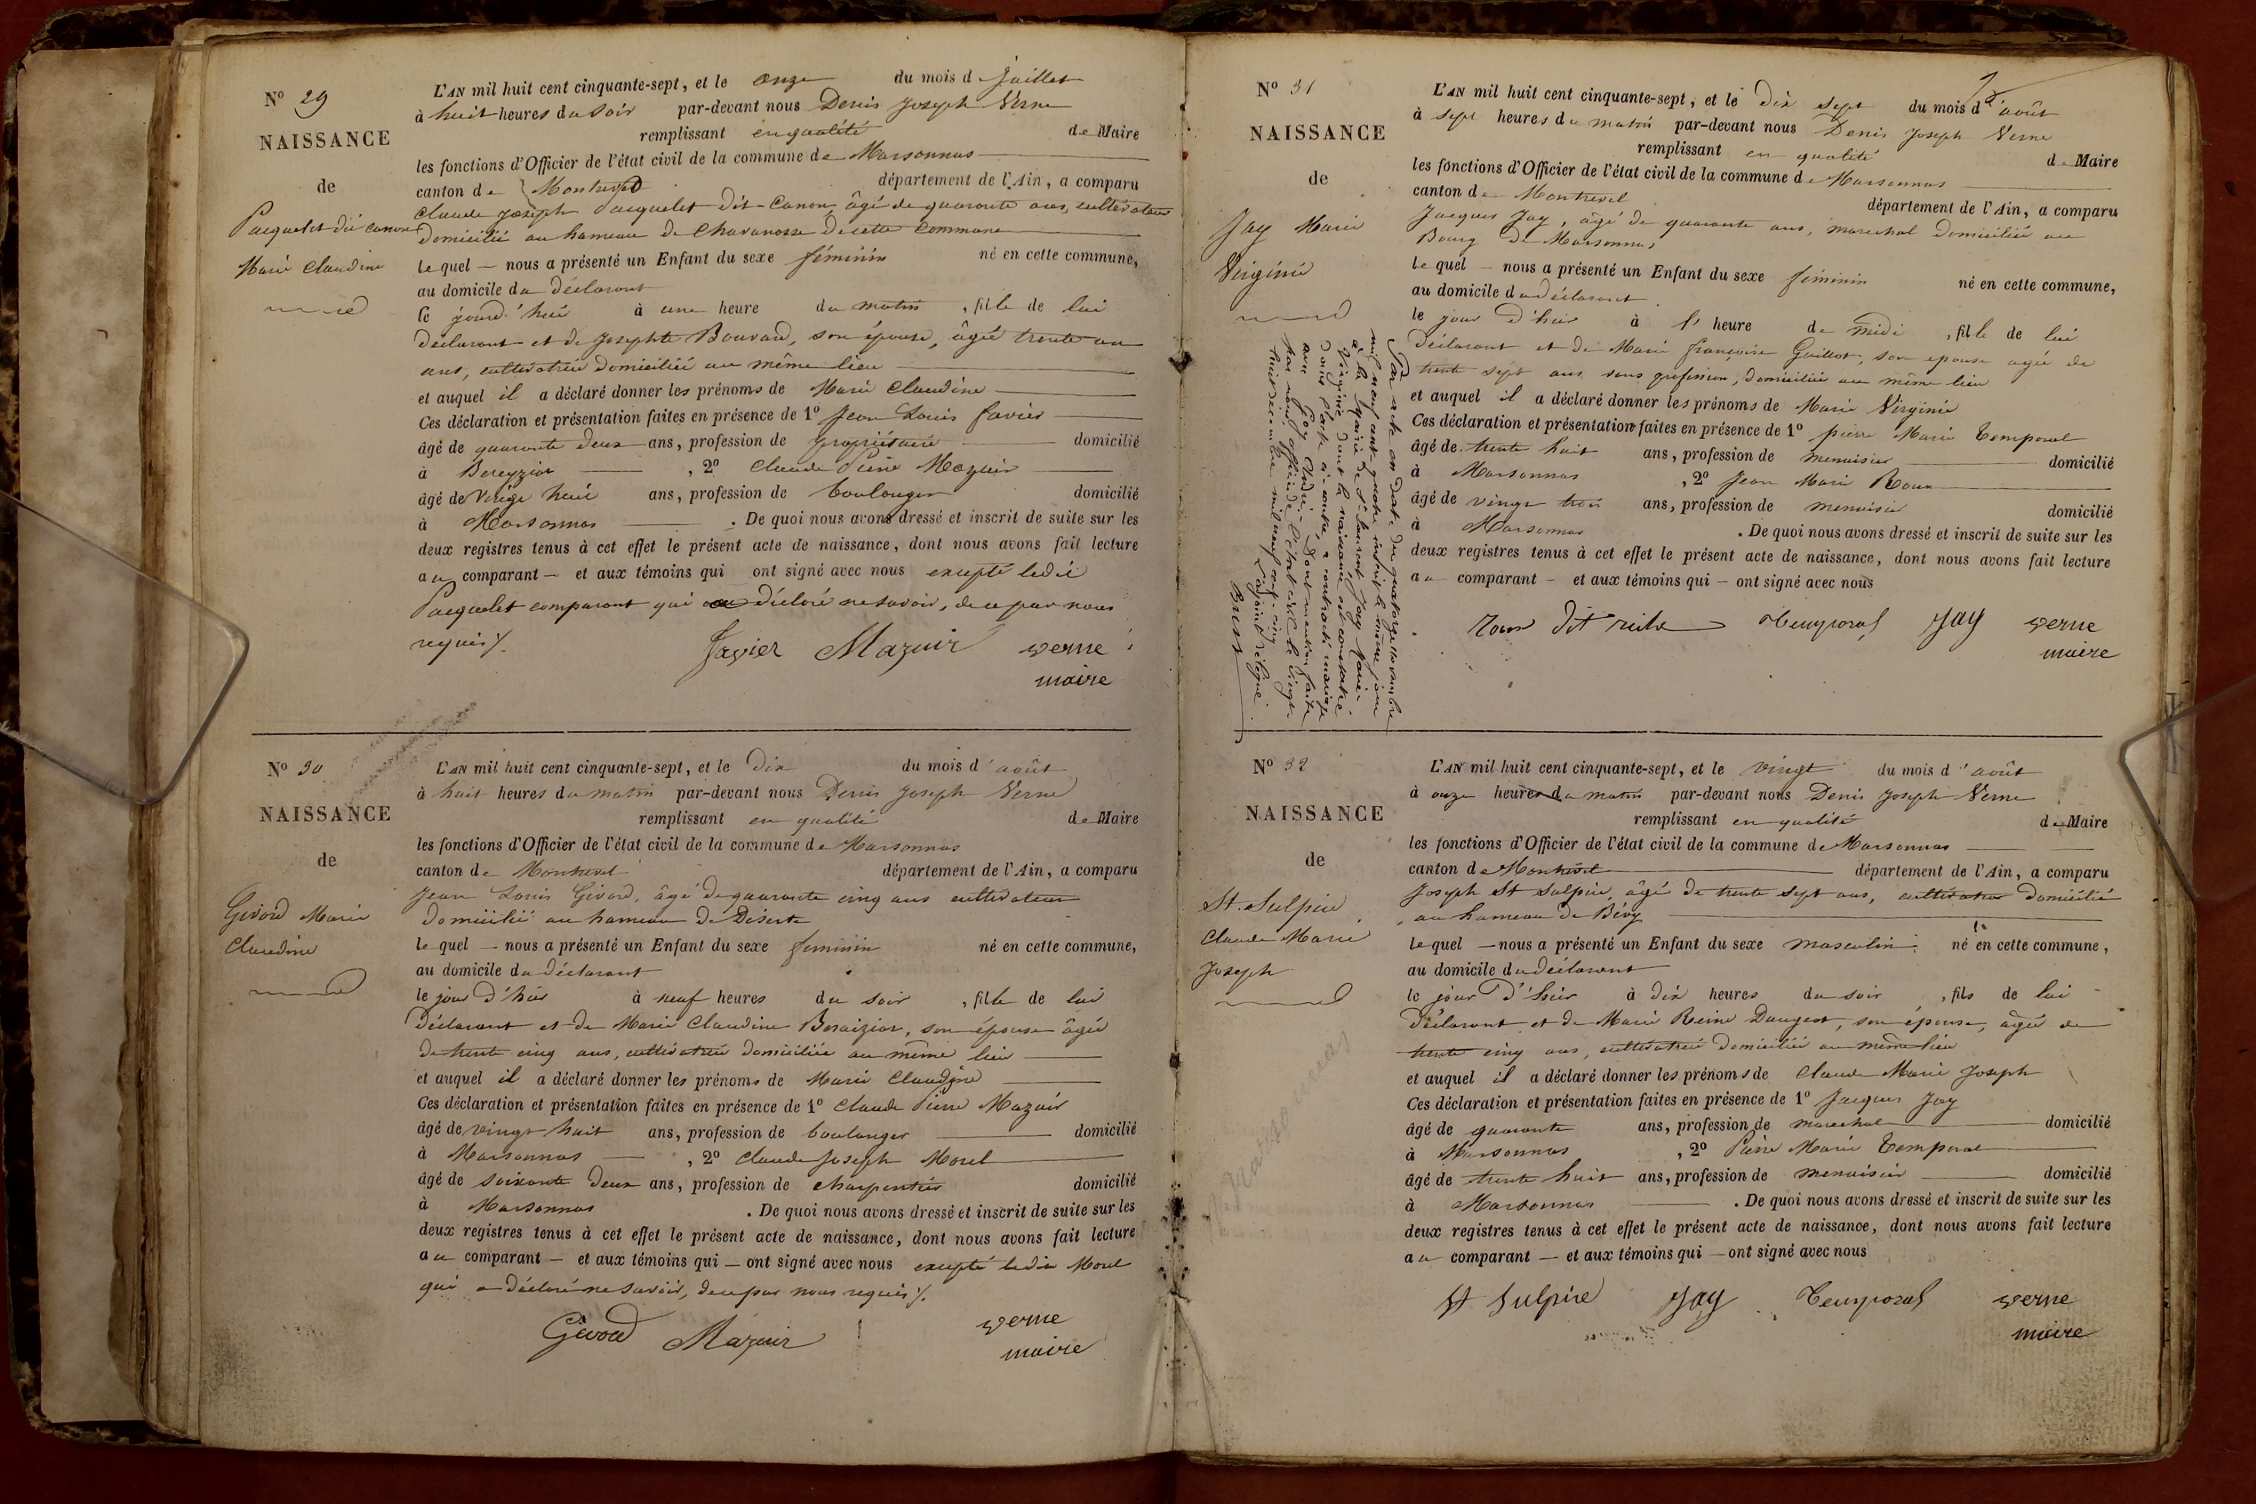 N° 29
NAISSANCE
de
Pacquelet dit canon
Marie Claudine
L'AN mil huit cent cinquante-sept, et le onze du mois de Juillet
à huit heures du soir par-devant nous Denis Joseph Verne
remplissant en qualité de Maire
les fonctions d'Officier de l'état civil de la commune de Marsonnas
canton de Montrevel département de l'Ain, a comparu
Claude Joseph Pacquelet dit Canon, âgé de quarante ans, cultivateur
domicilié au hameau de Chavanosse de cette commune
lequel — nous a présenté un Enfant du sexe féminin né en cette commune,
au domicile du déclarant
le jourd'hui à une heure du matin, fille de lui
déclarant et de Josephte Bouvard, son épouse, âgée trente un
ans, cultivatrice domiciliée au même lieu
et auquel il a déclaré donner les prénoms de Marie Claudine
Ces déclaration et présentation faites en présence de 1° Jean Louis favier
âgé de quarante deux ans, profession de propriétaire domicilié
à Bereyziat, 2° Claude Pierre Mazuir
âgé de vingt huit ans, profession de boulanger domicilié
à Marsonnas. De quoi nous avons dressé et inscrit de suite sur les
deux registres tenus à cet effet le présent acte de naissance, dont nous avons fait lecture
au comparant — et aux témoins qui ont signé avec nous excepté ledit
Pacquelet comparant qui a déclaré ne savoir, de ce par nous
requis /.
Favier Mazuir verne
maire
N° 30
NAISSANCE
de
Givord Marie
Claudine
L'AN mil huit cent cinquante-sept, et le dix du mois d'août
à huit heures du matin par-devant nous Denis Joseph Verne
remplissant en qualité de Maire
les fonctions d'Officier de l'état civil de la commune de Marsonnas
canton de Montrevel département de l'Ain, a comparu
Jean Louis Givord, âgé de quarante cinq ans cultivateur
domicilié au hameau de Déserte
lequel — nous a présenté un Enfant du sexe féminin né en cette commune,
au domicile du déclarant
le jour d'hier à neuf heures du soir, fille de lui
déclarant et de Marie Claudine Beraiziat, son épouse âgée
de trente cinq ans, cultivatrice domiciliée au même lieu
et auquel il a déclaré donner les prénoms de Marie Claudine
Ces déclaration et présentation faites en présence de 1° Claude Pierre Mazuir
âgé de vingt huit ans, profession de boulanger domicilié
à Marsonnas, 2° Claude Joseph Morel
âgé de soixante deux ans, profession de charpentier domicilié
à Marsonnas. De quoi nous avons dressé et inscrit de suite sur les
deux registres tenus à cet effet le présent acte de naissance, dont nous avons fait lecture
au comparant — et aux témoins qui — ont signé avec nous excepté ledit Morel
qui a déclaré ne savoir, de ce par nous requis /.
Givord Mazuir verne
maire
N° 31
NAISSANCE
de
Jay Marie
Virginie
L'AN mil huit cent cinquante-sept, et le dix sept du mois d'août
à sept heures du matin par-devant nous Denis Joseph Verne
remplissant en qualité de Maire
les fonctions d'Officier de l'état civil de la commune de Marsonnas
canton de Montrevel département de l'Ain, a comparu
Jacques Jay, âgé de quarante ans, marechal domicilié au
Bourg de Marsonnas
lequel — nous a présenté un Enfant du sexe féminin né en cette commune,
au domicile du déclarant
le jour d'hier à 1 heure de midi, fille de lui
déclarant et de Marie françoise Guillot, son épouse agée de
trente sept ans sans profession, domiciliée au même lieu
et auquel il a déclaré donner les prénoms de Marie Virginie
Ces déclaration et présentation faites en présence de 1° pierre Marie Temporal
âgé de trente huit ans, profession de menuisier domicilié
à Marsonnas, 2° Jean Marie Roux
âgé de vingt trois ans, profession de menuisier domicilié
à Marsonnas. De quoi nous avons dressé et inscrit de suite sur les
deux registres tenus à cet effet le présent acte de naissance, dont nous avons fait lecture
au comparant — et aux témoins qui — ont signé avec nous
Roux dit Temporal Jay verne
maire
Par acte en date du quatorze novembre
mil neuf cent quatre inscrit le même jour
à la Mairie de St Laurent, Jay Marie
Virginie dont la naissance est constatée
dans l'acte ci-contre, a contracté mariage
avec Dont mention faite
par nous officier de l'état civil le vingt
huit décembre mil neuf cent cinq
L'adjoint délégué
N° 32
NAISSANCE
de
St. Sulpice
Claude Marie
Joseph
L'AN mil huit cent cinquante-sept, et le vingt du mois d'août
à onze heures du matin par-devant nous Denis Joseph Verne
remplissant en qualité de Maire
les fonctions d'Officier de l'état civil de la commune de Marsonnas
canton de Montrevel département de l'Ain, a comparu
Joseph St Sulpice, âgé de trente sept ans, cultivateur domicilié
au hameau de Bévy
lequel — nous a présenté un Enfant du sexe masculin né en cette commune,
au domicile du déclarant
le jour d'hier à dix heures du soir, fils de lui
déclarant et de Marie Reine Dangeot, son épouse, âgée de
trente cinq ans, cultivatrice domiciliée au même lieu
et auquel il a déclaré donner les prénoms de Claude Marie Joseph
Ces déclaration et présentation faites en présence de 1° Jacques Jay
âgé de quarante ans, profession de marechal domicilié
à Marsonnas, 2° Pierre Marie Temporal
âgé de trente huit ans, profession de menuisier domicilié
à Marsonnas. De quoi nous avons dressé et inscrit de suite sur les
deux registres tenus à cet effet le présent acte de naissance, dont nous avons fait lecture
au comparant — et aux témoins qui — ont signé avec nous
St Sulpice Jay Temporal verne
maire